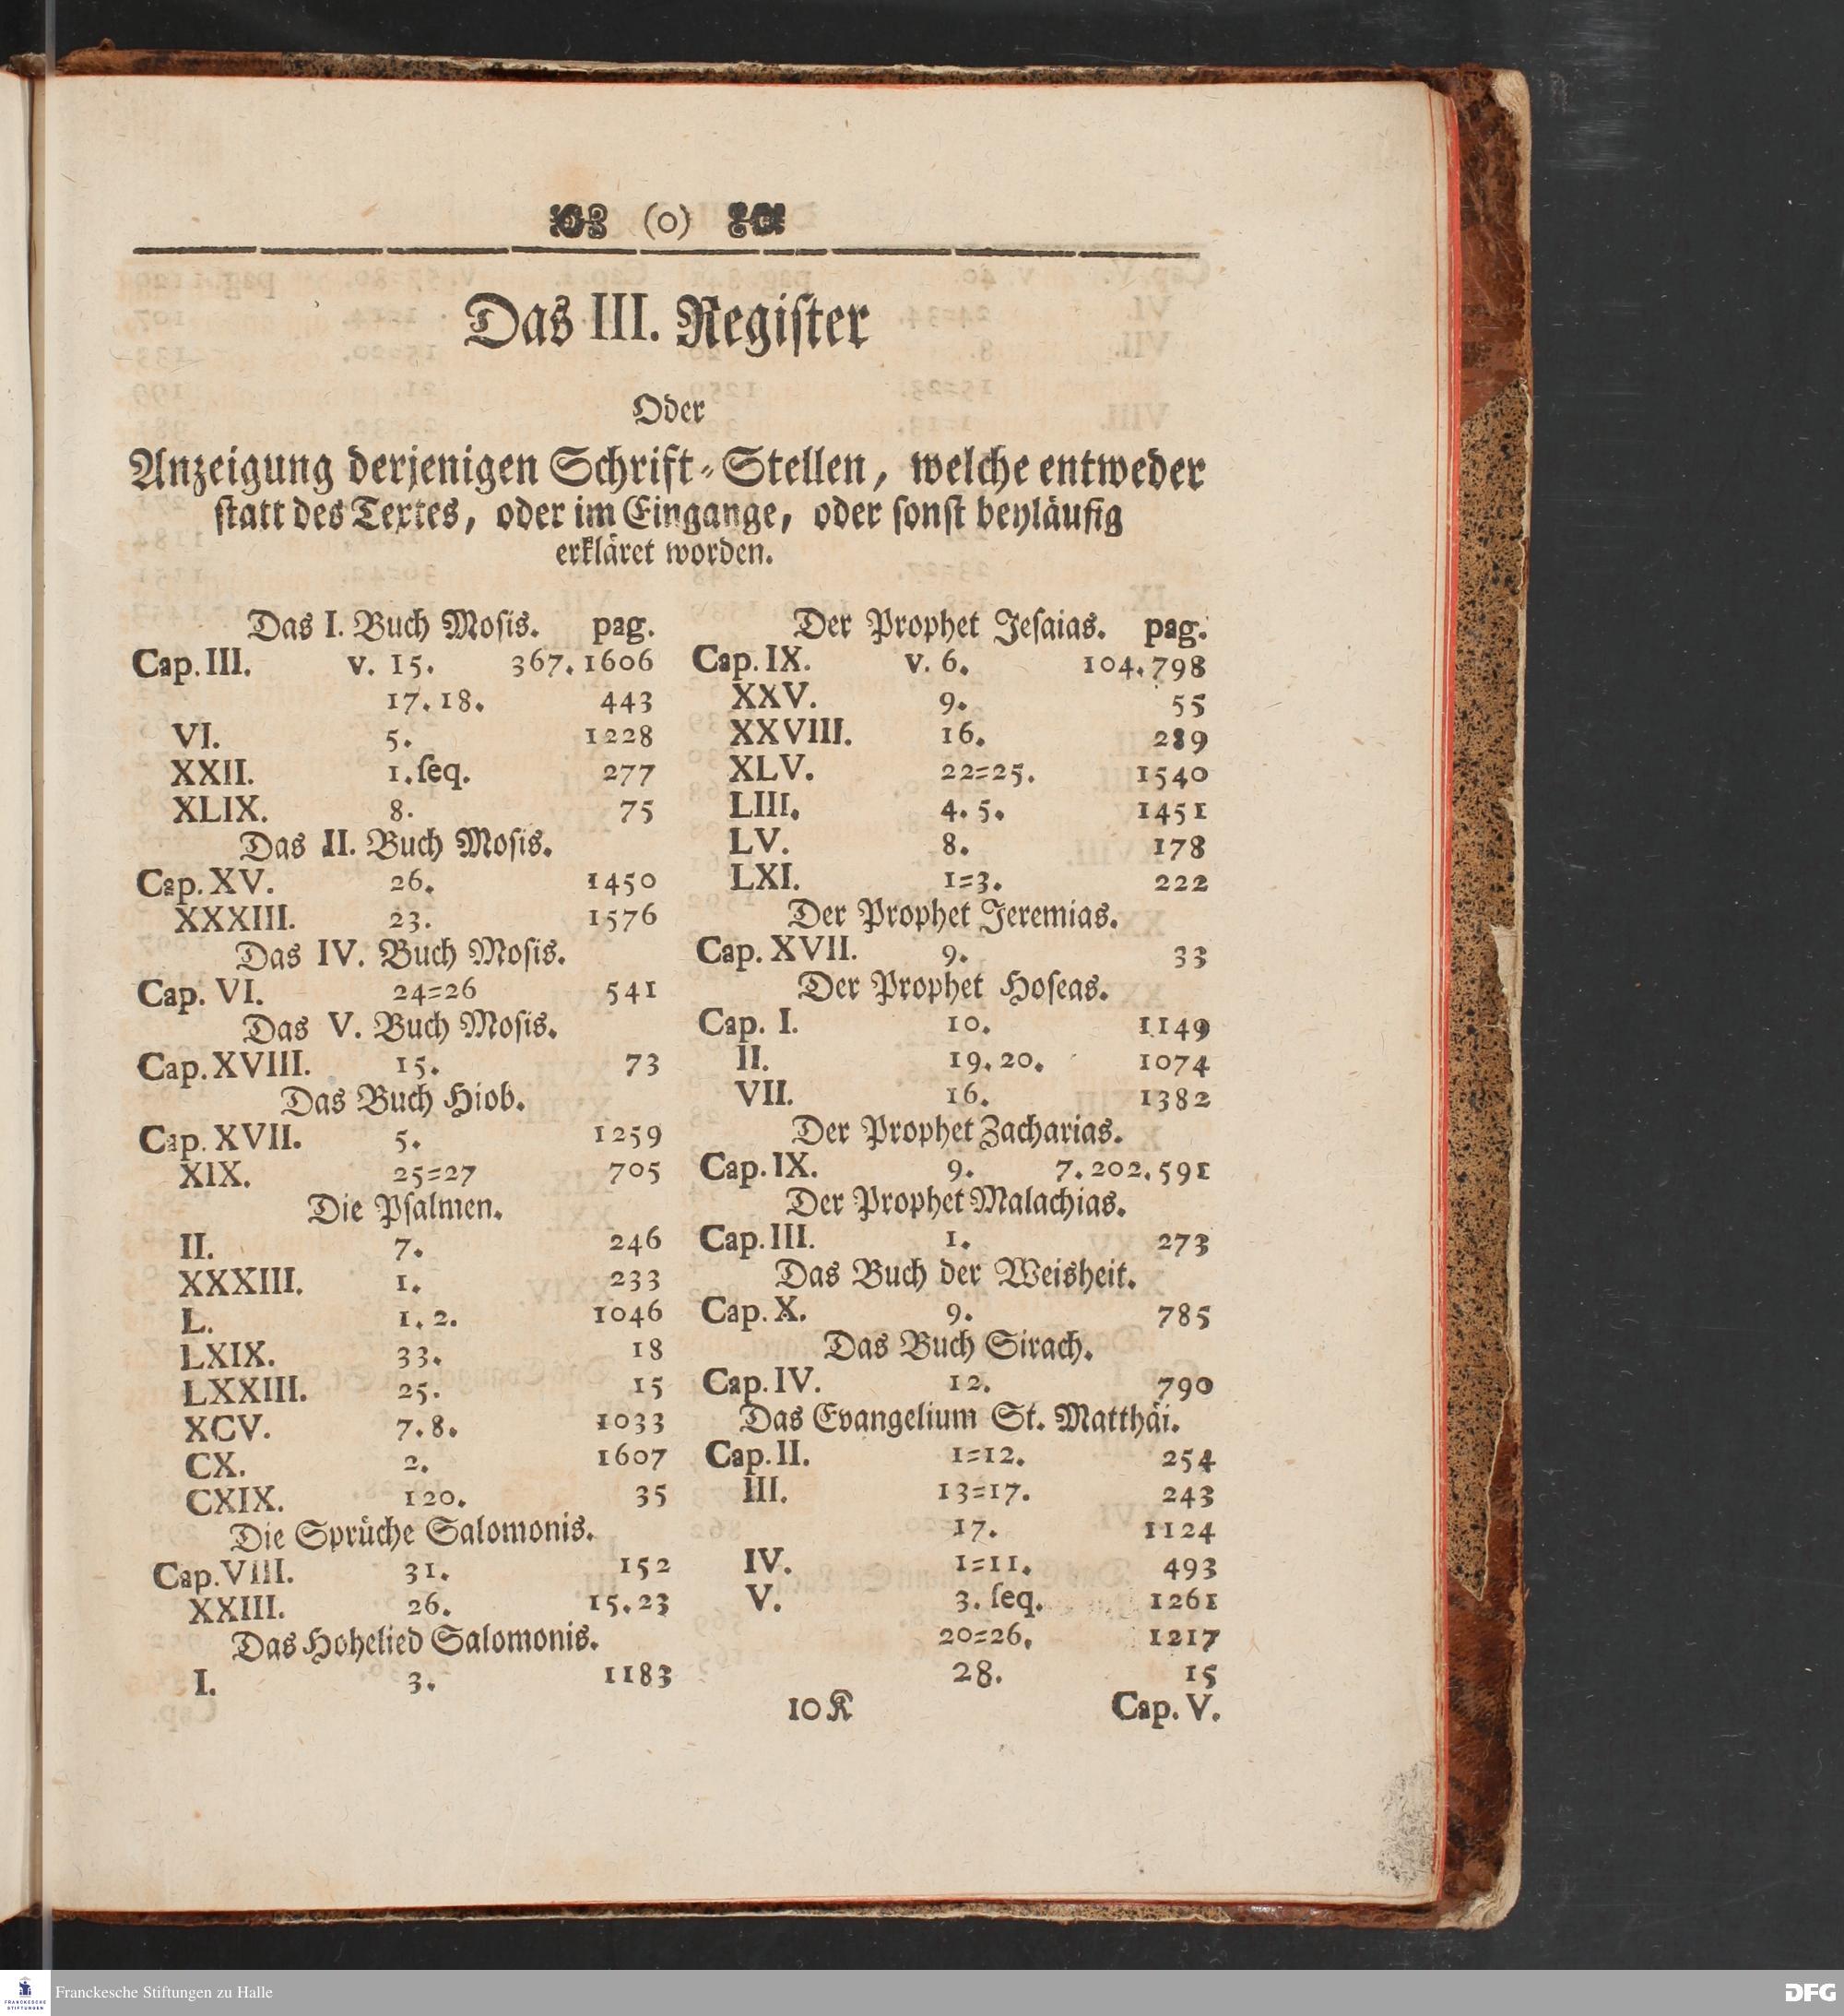 (o)
Das III. Regiſter
Oder
Anzeigung derjenigen Schrift-Stellen, welche entweder
ſtatt des Textes, oder im Eingange, oder ſonſt beyläufig
erkläret worden.
Das I. Buch Moſis. pag.
Cap. III. v. 15. 367. 1606
17. 18. 443
VI. 5. 1228
XXII. 1. ſeq. 277
XLIX. 8. 75
Das II. Buch Moſis.
Cap. XV. 26. 1450
XXXIII. 23. 1576
Das IV. Buch Moſis.
Cap. VI. 24=26 541
Das V. Buch Moſis.
Cap. XVIII. 15. 73
Das Buch Hiob.
Cap. XVII. 5. 1259
XIX. 25=27 705
Die Pſalmen.
II. 7. 246
XXXIII. 1. 233
L. 1. 2. 1046
LXIX. 33. 18
LXXIII. 25. 15
XCV. 7. 8. 1033
CX. 2. 1607
CXIX. 120. 35
Die Sprüche Salomonis.
Cap. VIII. 31. 152
XXIII. 26. 15. 23
Das Hohelied Salomonis.
I. 3. 1183
Der Prophet Jeſaias. pag.
Cap. IX. v. 6. 104. 798
XXV. 9. 55
XXVIII. 16. 289
XLV. 22=25. 1540
LIII. 4. 5. 1451
LV. 8. 178
LXI. 1=3. 222
Der Prophet Jeremias.
Cap. XVII. 9. 33
Der Prophet Hoſeas.
Cap. I. 10. 1149
II. 19. 20. 1074
VII. 16. 1382
Der Prophet Zacharias.
Cap. IX. 9. 7. 202. 591
Der Prophet Malachias.
Cap. III. 1. 273
Das Buch der Weisheit.
Cap. X. 9. 785
Das Buch Sirach.
Cap. IV. 12. 790
Das Evangelium St. Matthäi.
Cap. II. 1=12. 254
III. 13=17. 243
17. 1124
IV. 1=11. 493
V. 3. ſeq. 1261
20=26. 1217
28. 15
10 K Cap. V.
Franckesche Stiftungen zu Halle
FRANCKESCHE STIFTUNGEN
DFG